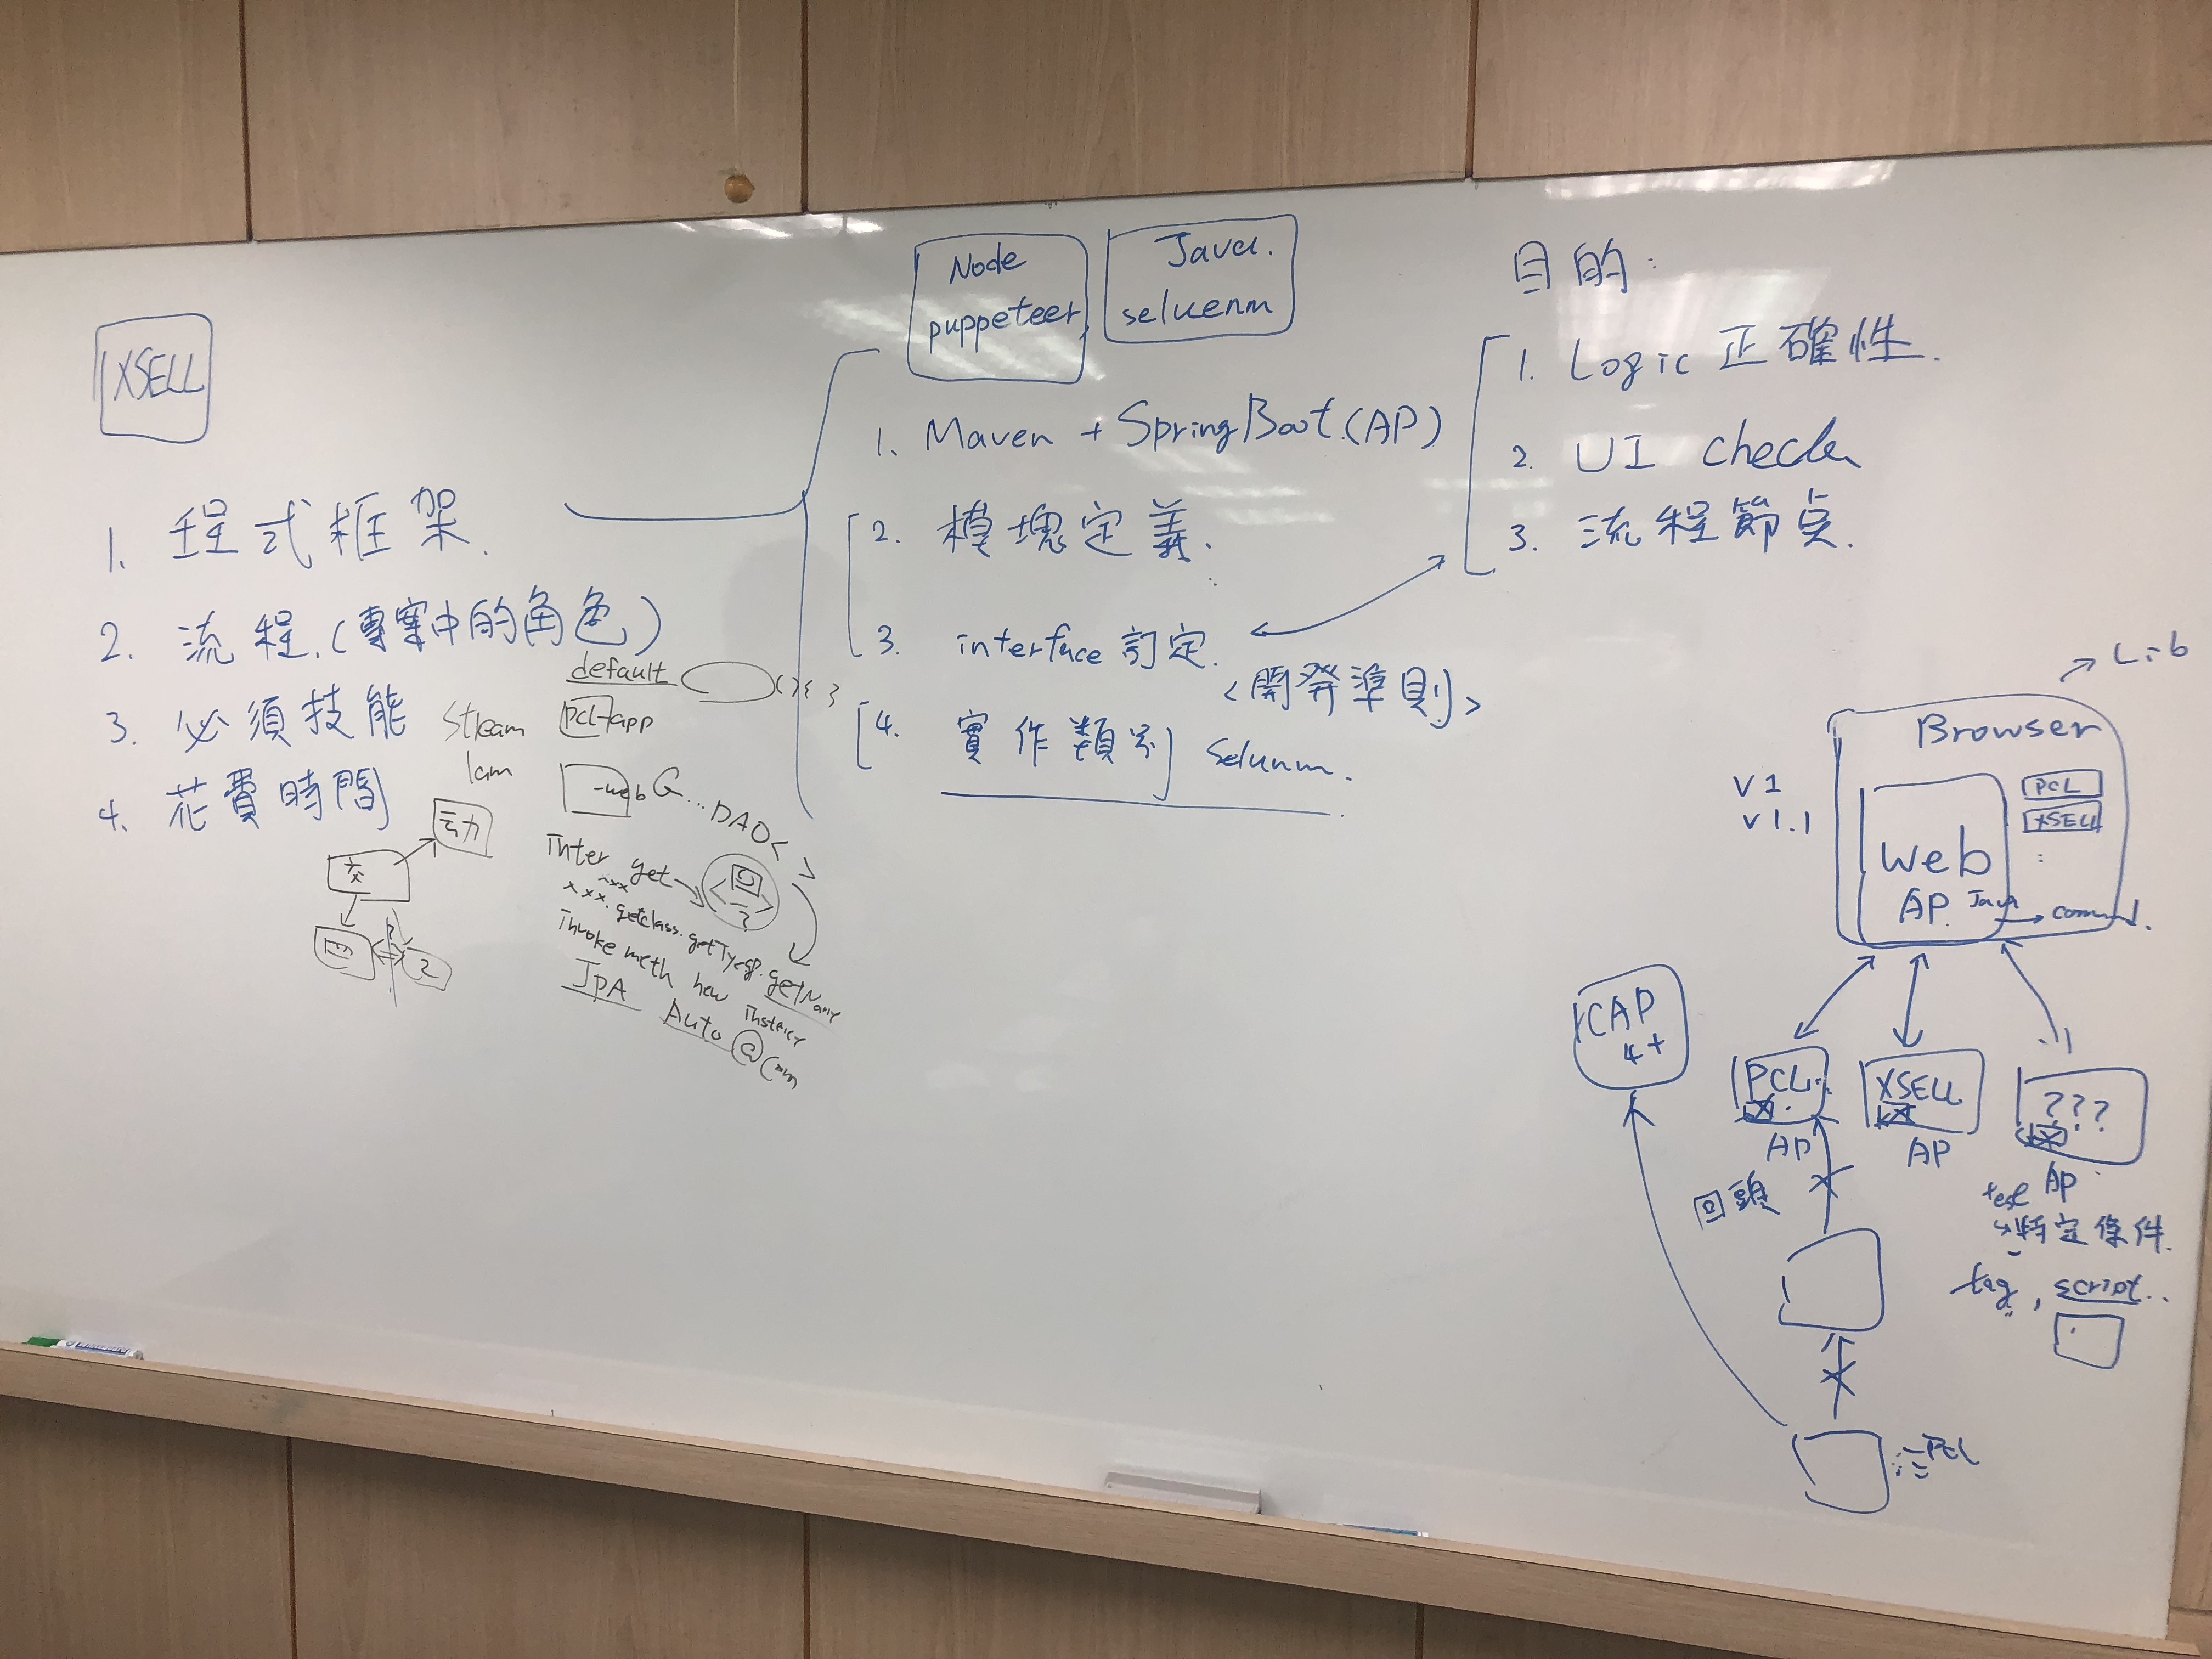 XSELL
1. 程式框架.
2. 流程.(專案中的角色)
3. 必須技能
4. 花費時間
Stream
lam
default (){ }
pcl-app
-web G...DAO< >
Inter get
xxx.getclass.getTyep.getName
Invoke meth new instance
JPA Auto @Com
Node
puppeteer
Java.
seluenm
1. Maven + SpringBoot.(AP)
2. 模塊定義.
3. interface 訂定.
<開發準則>
4. 實作類別 selunm.
目的:
1. Logic 正確性.
2. UI check
3. 流程節点.
Lib
Browser
V1
V1.1
PCL
XSELL
Web
AP. Java
command.
CAP
4+
PCL
AP
XSELL
AP
???
AP
回頭
test
特定條件.
tag, script..
PCL